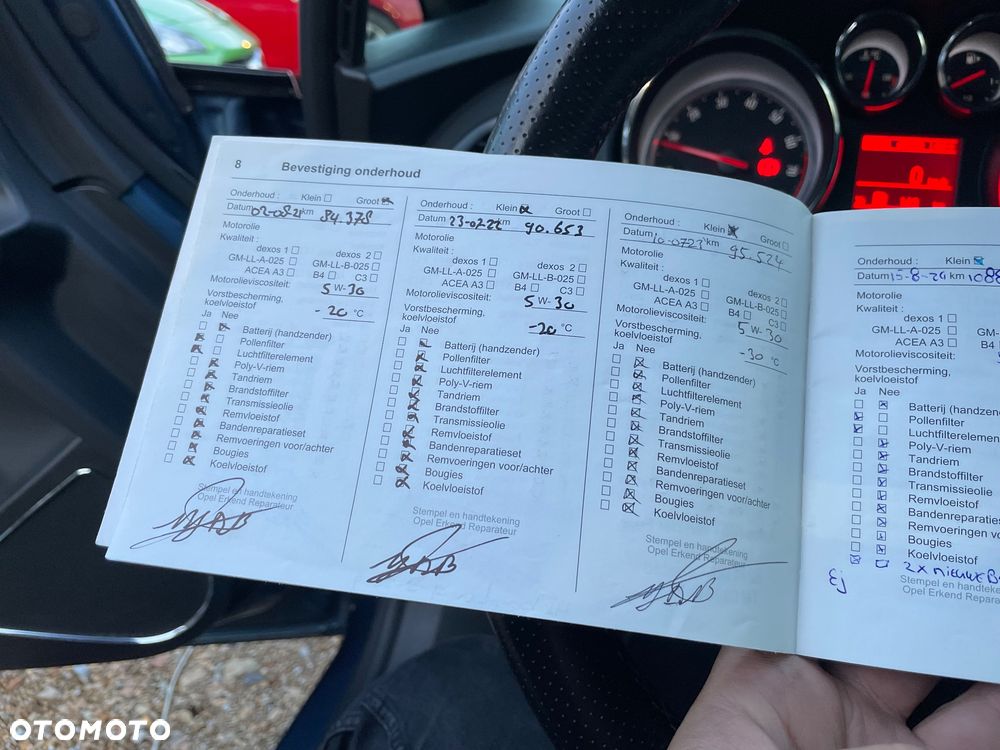 8 Bevestiging onderhoud
Onderhoud : Klein Groot
Datum 02-08-21 km 84.378
Motorolie
Kwaliteit :
dexos 1 dexos 2
GM-LL-A-025 GM-LL-B-025
ACEA A3 B4 C3
Motorolieviscositeit: 5 W-30
Vorstbescherming,
koelvloeistof -20 °C
Ja Nee
Batterij (handzender)
Pollenfilter
Luchtfilterelement
Poly-V-riem
Tandriem
Brandstoffilter
Transmissieolie
Remvloeistof
Bandenreparatieset
Remvoeringen voor/achter
Bougies
Koelvloeistof
Stempel en handtekening
Opel Erkend Reparateur
Onderhoud : Klein Groot
Datum 23-07-22 km 90.653
Motorolie
Kwaliteit :
dexos 1 dexos 2
GM-LL-A-025 GM-LL-B-025
ACEA A3 B4 C3
Motorolieviscositeit: 5 W-30
Vorstbescherming,
koelvloeistof -20 °C
Ja Nee
Batterij (handzender)
Pollenfilter
Luchtfilterelement
Poly-V-riem
Tandriem
Brandstoffilter
Transmissieolie
Remvloeistof
Bandenreparatieset
Remvoeringen voor/achter
Bougies
Koelvloeistof
Stempel en handtekening
Opel Erkend Reparateur
Onderhoud : Klein Groot
Datum 10-0723 km 95.524
Motorolie
Kwaliteit :
dexos 1 dexos 2
GM-LL-A-025 GM-LL-B-025
ACEA A3 B4 C3
Motorolieviscositeit: 5 W-30
Vorstbescherming,
koelvloeistof -30 °C
Ja Nee
Batterij (handzender)
Pollenfilter
Luchtfilterelement
Poly-V-riem
Tandriem
Brandstoffilter
Transmissieolie
Remvloeistof
Bandenreparatieset
Remvoeringen voor/achter
Bougies
Koelvloeistof
Stempel en handtekening
Opel Erkend Reparateur
Onderhoud : Klein
Datum 15-8-24 km
Motorolie
Kwaliteit :
dexos 1
GM-LL-A-025
ACEA A3
Motorolieviscositeit:
Vorstbescherming,
koelvloeistof
Ja Nee
Batterij (handzen
Pollenfilter
Luchtfilterelemen
Poly-V-riem
Tandriem
Brandstoffilter
Transmissieolie
Remvloeistof
Bandenreparaties
Remvoeringen vo
Bougies
Koelvloeistof
2x nieuwe B
Stempel en handteke
Opel Erkend Repara
OTOMOTO